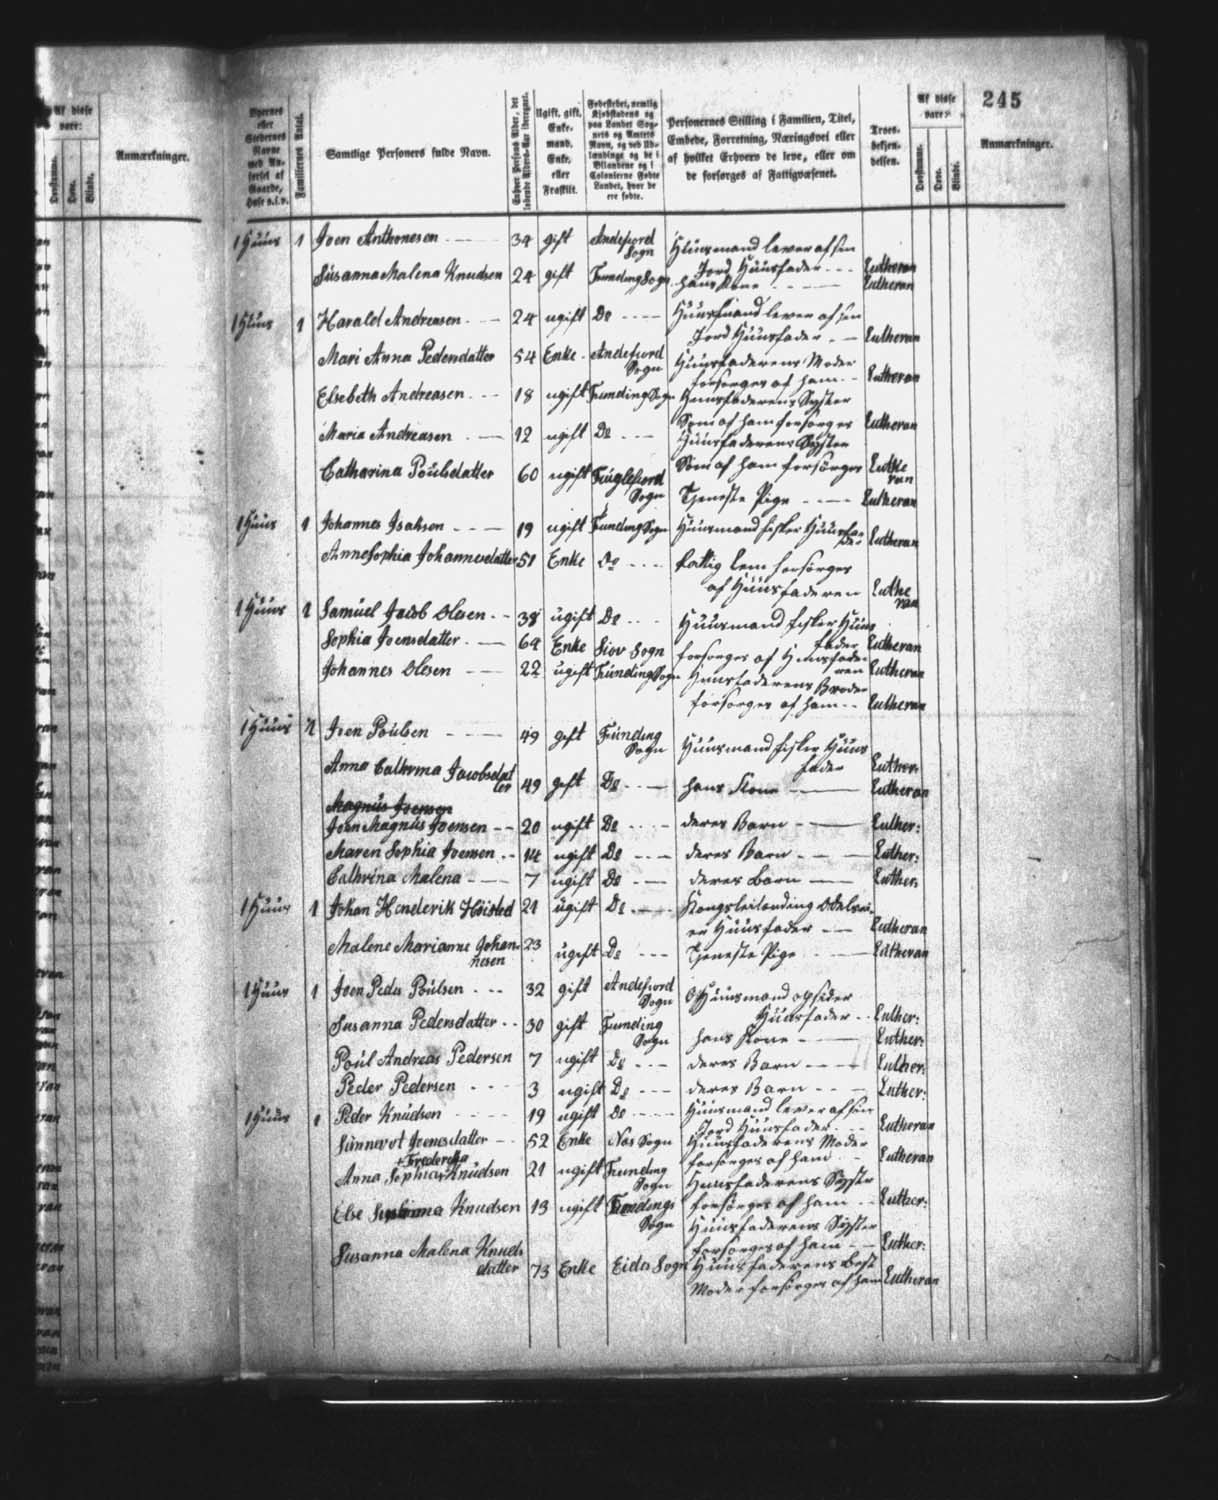 Af disse
vare:
Døvstumme.
Døve.
Blinde.
Anmærkninger.
245
Byernes
eller
Stedernes
Navne
med An-
førsel af
Gaarde,
Huse o.s.v.
Familiernes Antal.
Samtlige Personers fulde Navn.
Enhver Persons Alder, det
løbende Alders-Aar iberegnet.
Ugift, gift,
Enke-
mand,
Enke,
eller
Fraskilt.
Fødestedet, nemlig
Kjøbstadens og
paa Landet Sog-
nets og Amtets
Navn, og ved Ud-
lændinge og de i
Bilandene og i
Colonierne Fødte
Landet, hvor de
ere fødte.
Personernes Stilling i Familien, Titel,
Embede, Forretning, Næringsvei eller
af hvilket Erhverv de leve, eller om
de forsørges af Fattigvæsenet.
Troes-
bekjen-
delsen.
Af disse
vare:
Døvstumme.
Døve.
Blinde.
Anmærkninger.
1 Huus 1 Joen Anthonesen 34 gift Andefiord Sogn Huusmand lever af sin
Jord Huusfader Lutheran
Susanna Malena Knudsen 24 gift Funding Sogn hans Kone Lutheran
1 Huus 1 Harald Andreasen 24 ugift Do Huusmand lever af sin
Jord Huusfader Lutheran
Mari Anna Pedersdatter 54 Enke Andefiord Sogn Huusfaderens Moder
forsørges af ham Lutheran
Elsebeth Andreasen 18 ugift Funding Sogn Huusfaderens Syster
Som af ham forsørges Lutheran
Maria Andreasen 12 ugift Do Huusfaderens Syster
Som af ham forsørges Lutheran
Catharina Poulsdatter 60 ugift Fuglefiord Sogn Tjeneste Pige Lutheran
1 Huus 1 Johannes Isaksen 19 ugift Funding Sogn Huusmand fisker Huusfader Lutheran
Anne Sophia Johannesdatter 51 Enke Do Fattig Lem forsørges
af Huusfaderen Lutheran
1 Huus 1 Samuel Jacob Olesen 38 ugift Do Huusmand fisker Huus
fader Lutheran
Sophia Joensdatter 64 Enke Siov Sogn forsørges af Huusfaderen Lutheran
Johannes Olesen 22 ugift Funding Sogn Huusfaderens Broder
forsørges af ham Lutheran
1 Huus 1 Joen Poulsen 49 gift Funding Sogn Huusmand fisker Huus
fader Luther:
Anna Cathrina Jacobsdatter 49 gift Do hans Kone Lutheran
Magnus Joensen
Joen Magnus Joensen 20 ugift Do deres Barn Luther:
Maren Sophia Joensen 14 ugift Do deres Barn Luther:
Cathrina Malena 7 ugift Do deres Barn Luther:
1 Huus 1 Johan Henderik Høisted 21 ugift Do Kongsleilænding Odelsei-
er Huusfader Lutheran
Malene Marianne Johannesen 23 ugift Do Tjeneste Pige Lutheran
1 Huus 1 Joen Peder Poulsen 32 gift Andefiord Sogn Huusmand opsider
Huusfader Luther:
Susanna Pedersdatter 30 gift Funding Sogn hans Kone Luther:
Poul Andreas Pedersen 7 ugift Do deres Barn Luther:
Peder Pedersen 3 ugift Do deres Barn Luther:
1 Huus 1 Peder Knudsen 19 ugift Do Huusmand lever af sin
Jord Huusfader Lutheran
Sunnevot Joensdatter 52 Enke Nas Sogn Huusfaderens Moder
forsørges af ham Lutheran
+ Frederekka
Anna Sophia Knudsen 21 ugift Funding Sogn Huusfaderens Syster
forsørges af ham Luther:
Else Knudsen 13 ugift Fundings Sogn Huusfaderens Syster
forsørges af ham Luther:
Susanna Malena Knuds
datter 73 Enke Eides Sogn Huusfaderens Best
Moder forsørges af ham Lutheran